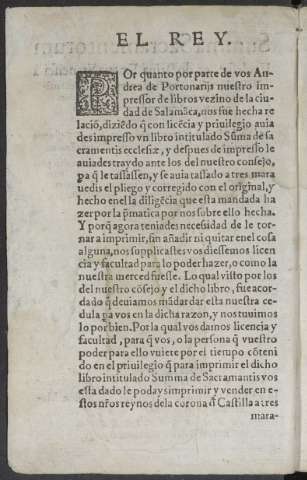 EL REY.
POr quanto por parte de vos An
drea de Portonarijs nuestro im
pressor de libros vezino de la ciu
dad de Salamãca, nos fue hecha re
lació, diziẽdo q̃ con licẽcia y priuilegio auia
des impresso vn libro intitulado Sũma de sa
cramentis ecclesiæ, y despues de impresso le
auiades traydo ante los del nuestro consejo,
pa q̃ le tassassen, y se auia tassado a tres mara
uedis el pliego y corregido con el original, y
hecho en el la diligẽcia que esta mandada ha
zer por la p̃matica por nos sobre ello hecha.
Y porq̃ agora teniades necesidad de le tor-
nar a imprimir, sin añadir ni quitar en el cosa
alguna, nos supplicastes vos diessemos licen
cia y facultad para lo poder hazer, o como la
nuestra merced fuesse. Lo qual visto por los
del nuestro cõsejo y el dicho libro, fue acor-
dado q̃ deuiamos mãdar dar esta nuestra ce-
dula pa vos en la dicha razon, y nos tuuimos
lo por bien. Por la qual vos damos licencia y
facultad, para q̃ vos, o la persona q̃ vuestro
poder para ello vuiere por el tiempo cõteni
do en el priuilegio q̃ para imprimir el dicho
libro intitulado Summa de Sacramantis vos
esta dado le poday simprimir y vender en e-
stos nr̃os reynos de la corona d̃ Castilla a tres
mara-